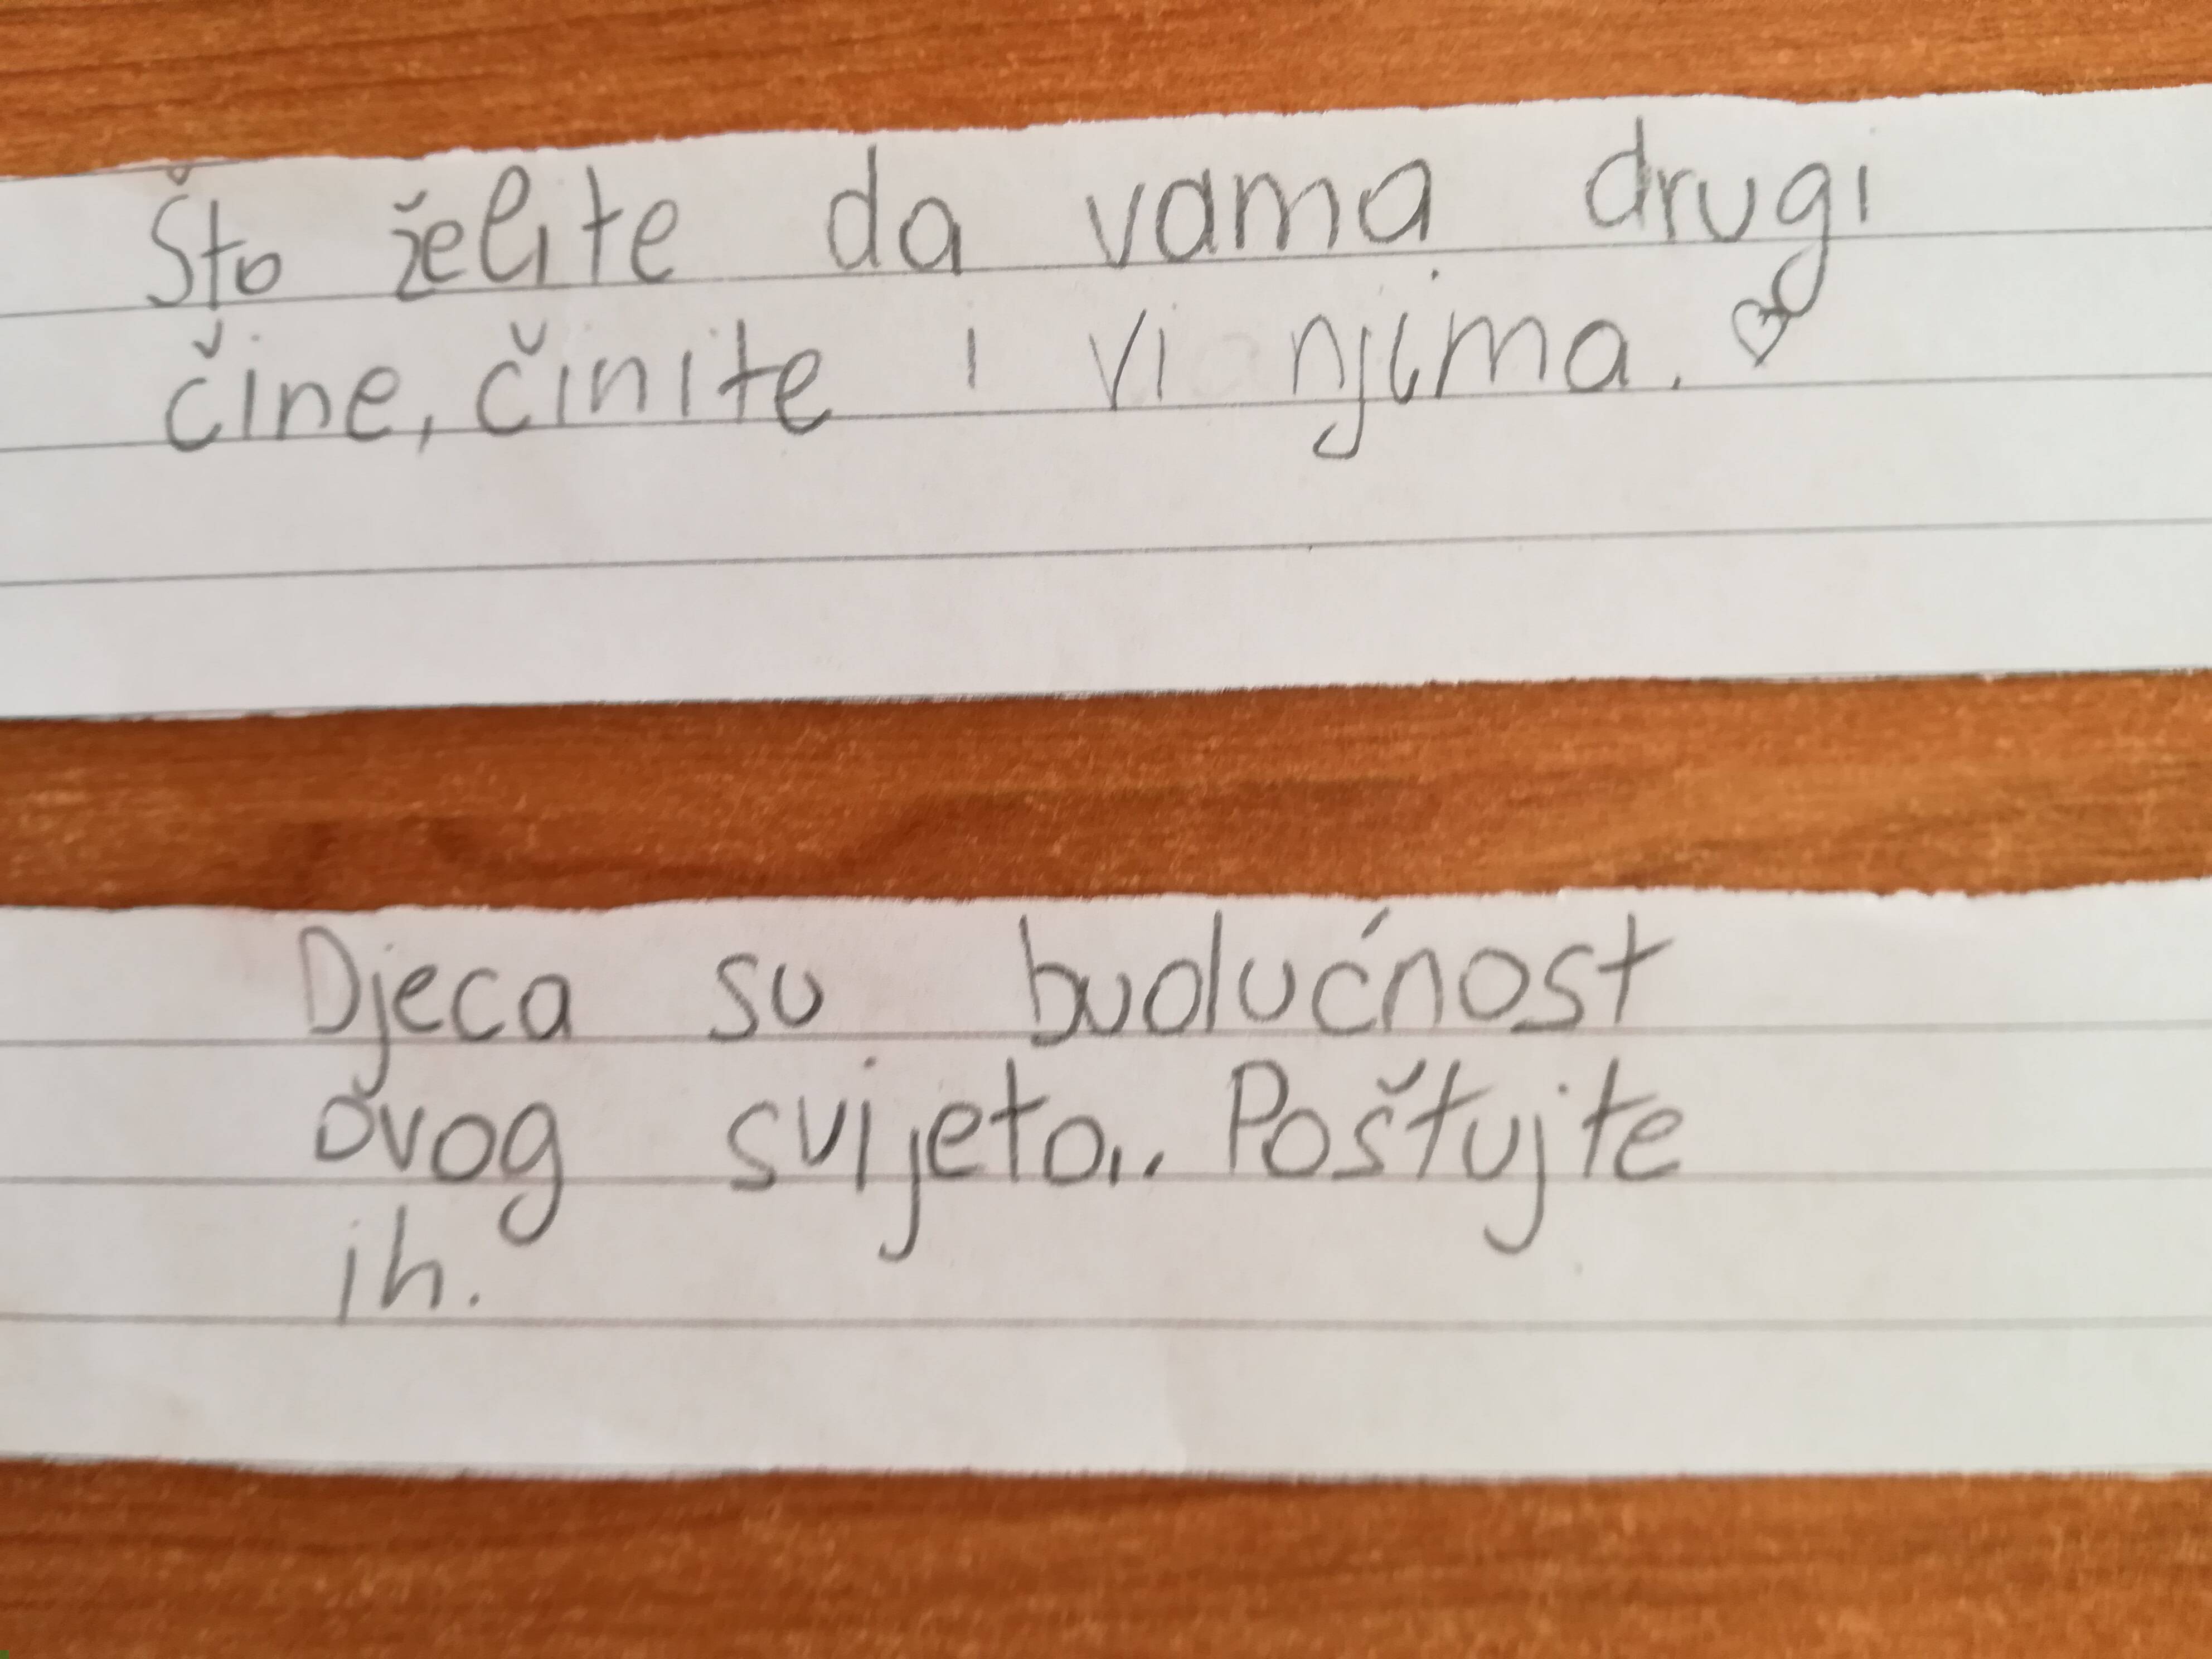 Što želite da vama drugi
čine, činite i vi njima.
Djeca su budućnost
ovog svijeta.. Poštujte
ih.